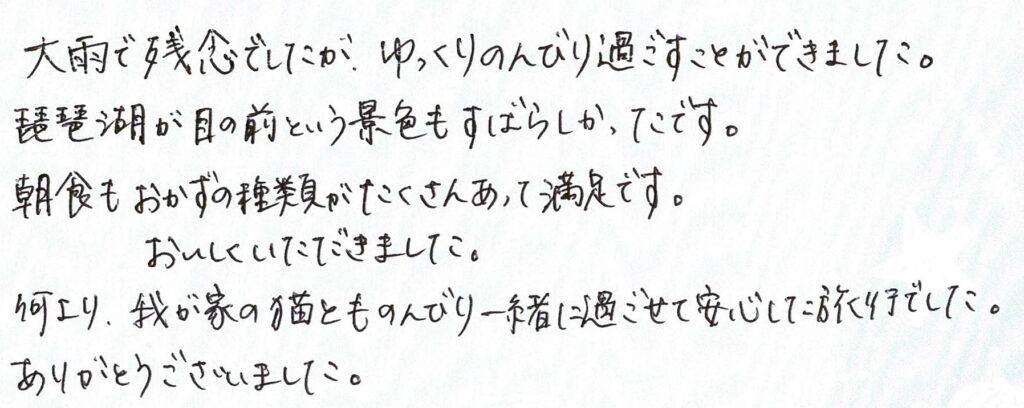 大雨で残念でしたが、ゆっくりのんびり過ごすことができました。
琵琶湖が目の前という景色もすばらしかったです。
朝食もおかずの種類がたくさんあって満足です。
おいしくいただきました。
何より、我が家の猫とものんびり一緒に過ごせて安心した旅行でした。
ありがとうございました。